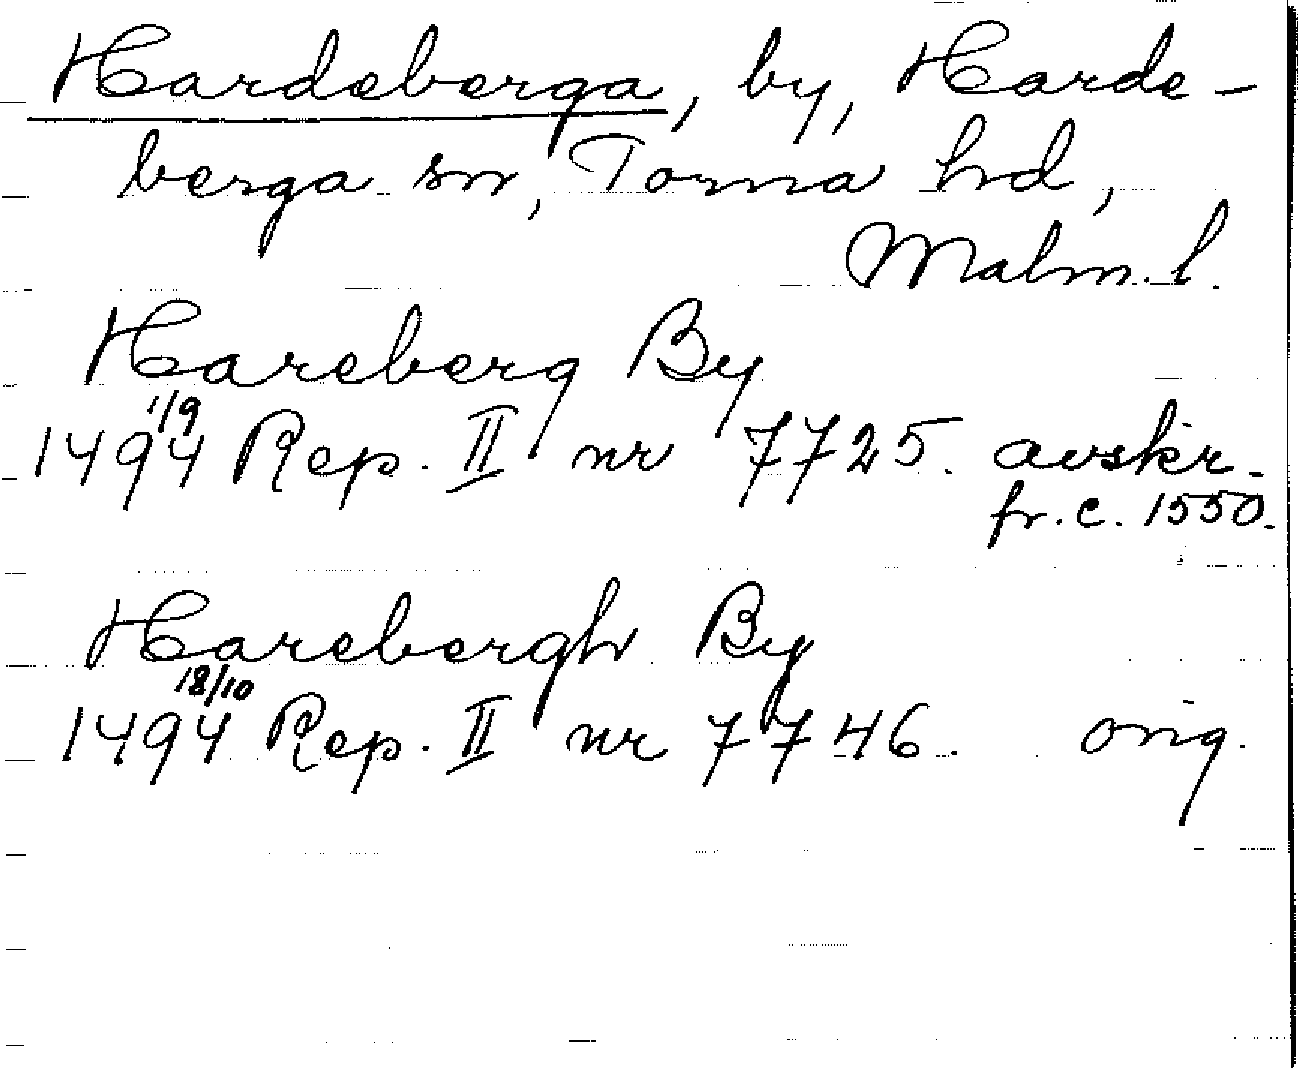 Hardeberga, by, Harde-
berga sn, Torna hd,
Malm. l.
Hareberg By
1/9
1494 Rep. II nr 7725. avskr.
fr. c. 1550.
Harebergh By
18/10
1494 Rep. II nr 7746. orig.